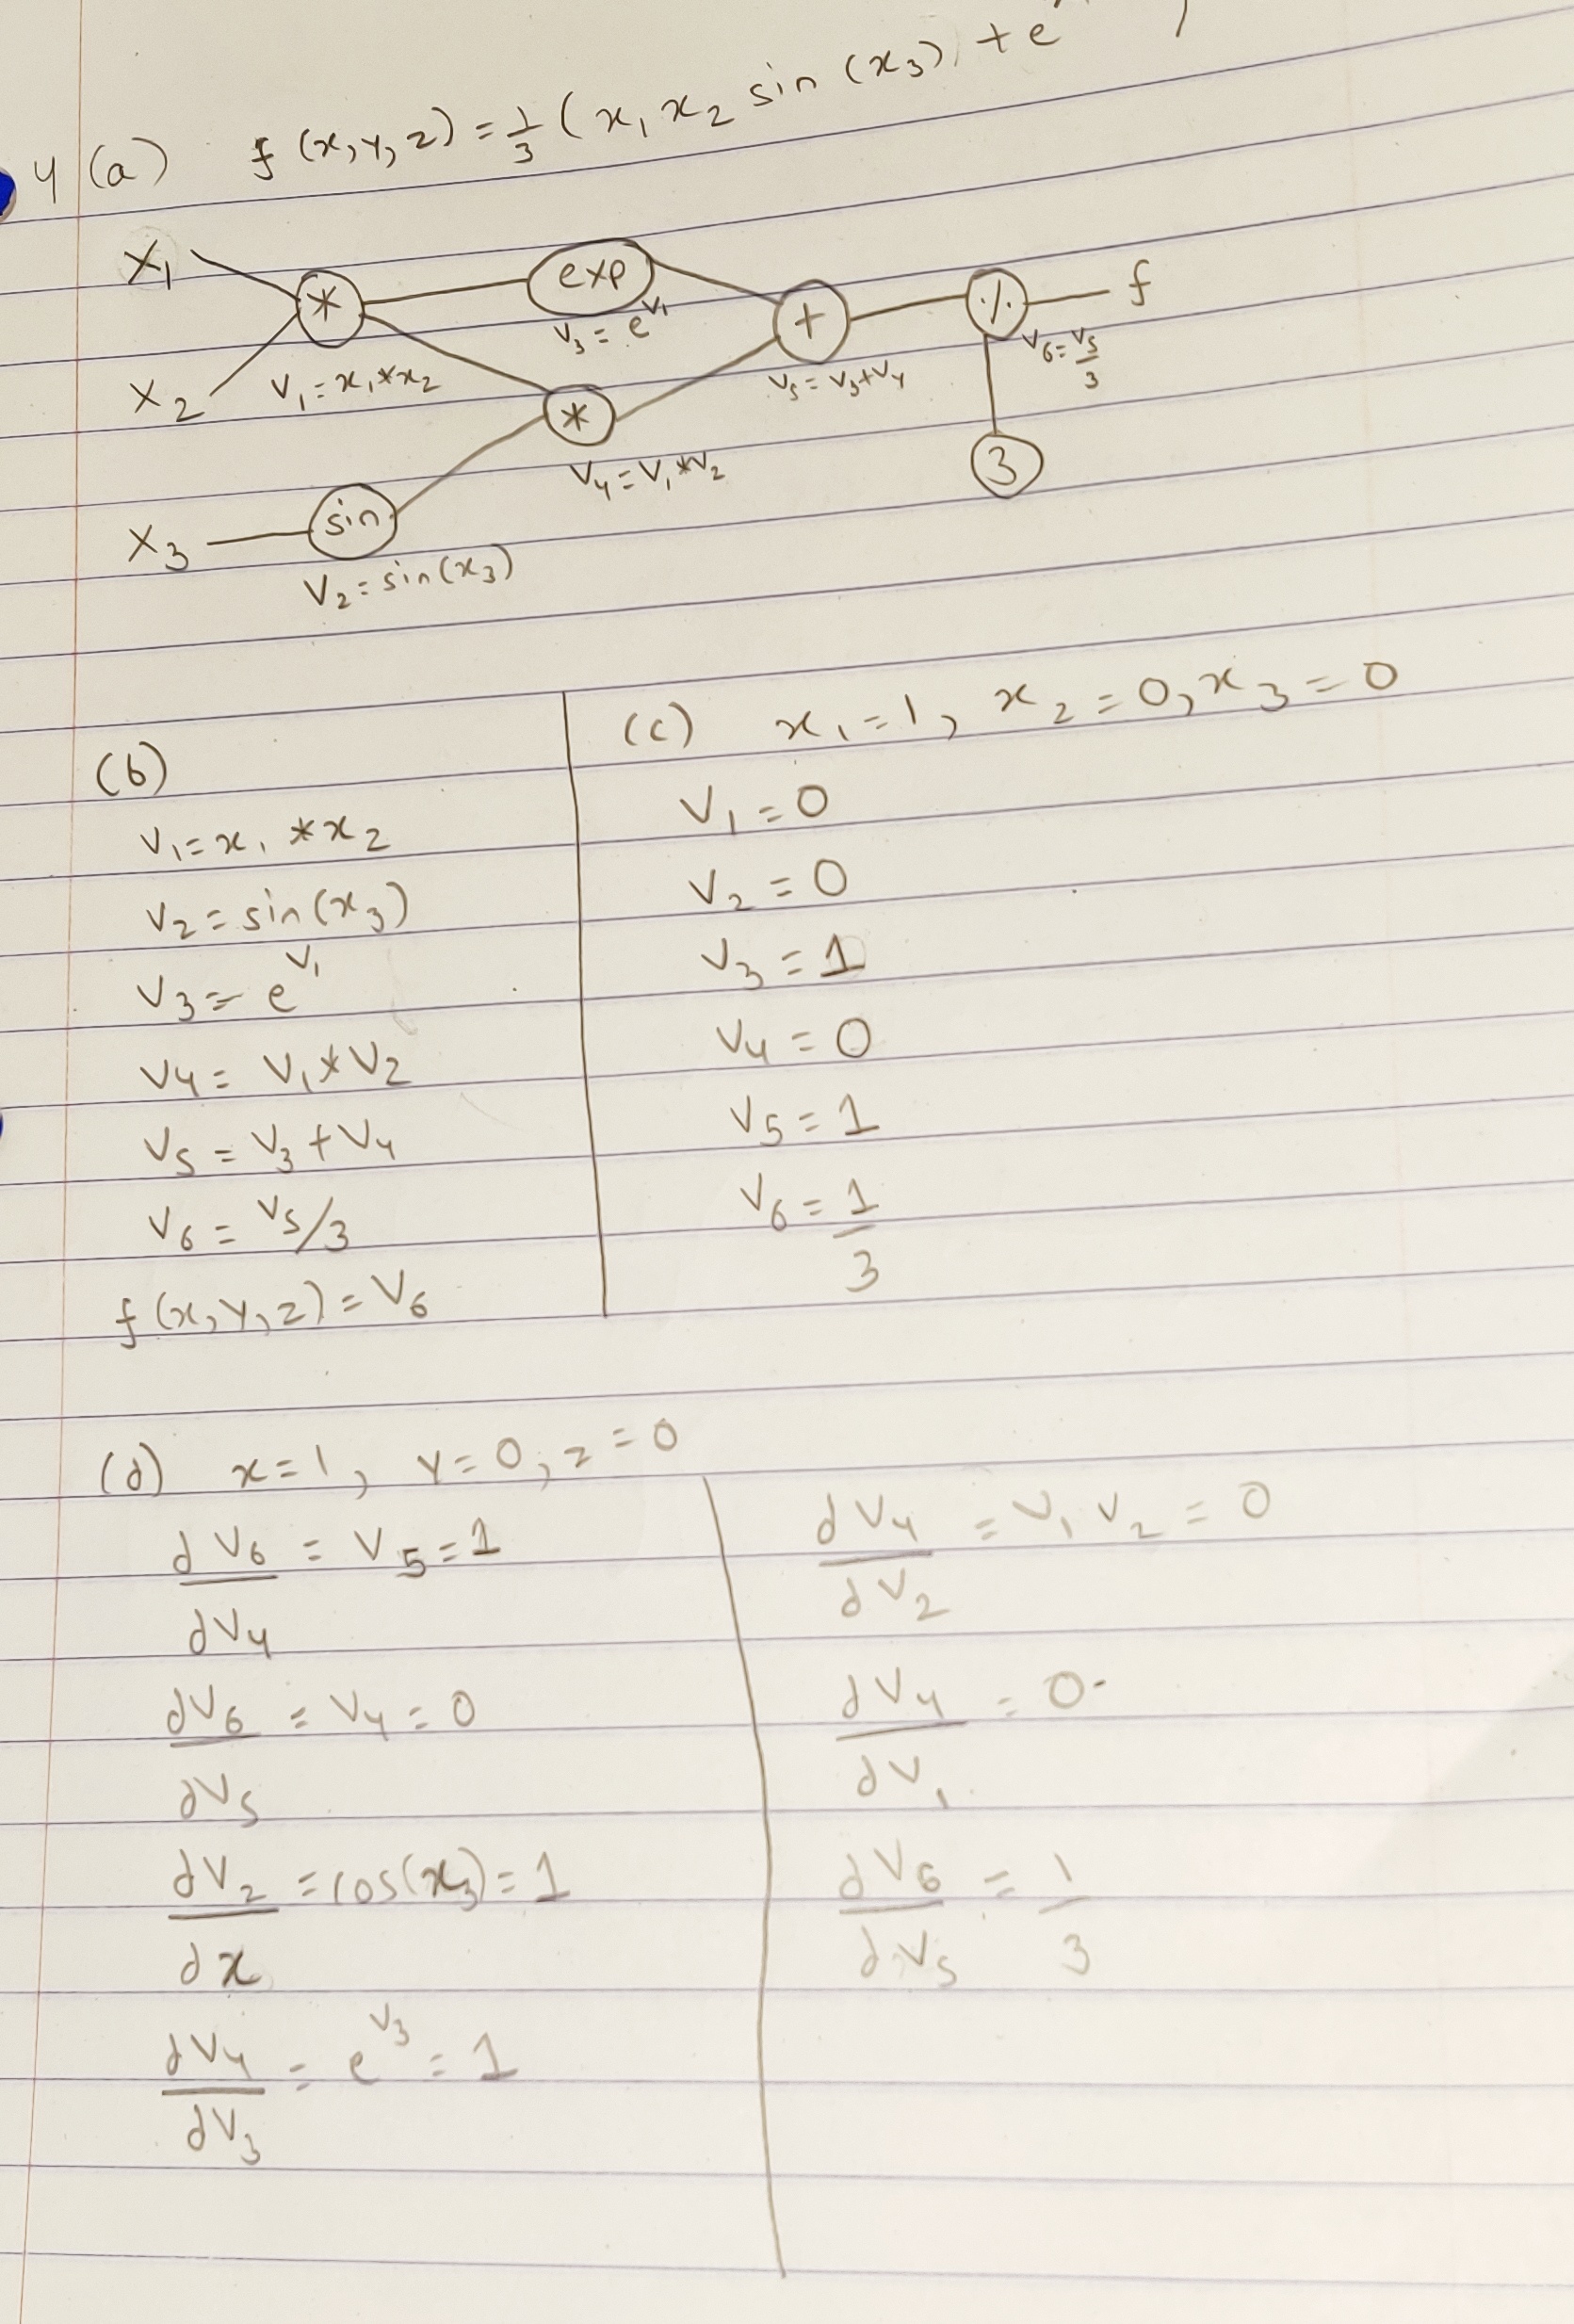 4 (a) f (x, y, z) = 1/3 ( x₁ x₂ sin (x₃) + e
X₁
*
exp
+
·/·
f
V₃ = e^V₁
V₆ = V₅/3
X₂
V₁ = x₁ * x₂
V₅ = V₃ + V₄
*
V₄ = V₁ * V₂
3
X₃
sin
V₂ = sin(x₃)
(b)
V₁ = x₁ * x₂
V₂ = sin(x₃)
V₃ = e^V₁
V₄ = V₁ * V₂
V₅ = V₃ + V₄
V₆ = V₅/3
f (x, y, z) = V₆
(c) x₁ = 1, x₂ = 0, x₃ = 0
V₁ = 0
V₂ = 0
V₃ = 1
V₄ = 0
V₅ = 1
V₆ = 1/3
(d) x = 1, y = 0, z = 0
dV₆/dV₄ = V₅ = 1
dV₆/dV₅ = V₄ = 0
dV₂/dx = cos(x₃) = 1
dV₄/dV₃ = e^V₃ = 1
dV₄/dV₂ = V₁ V₂ = 0
dV₄/dV₁ = 0
dV₆/dV₅ = 1/3